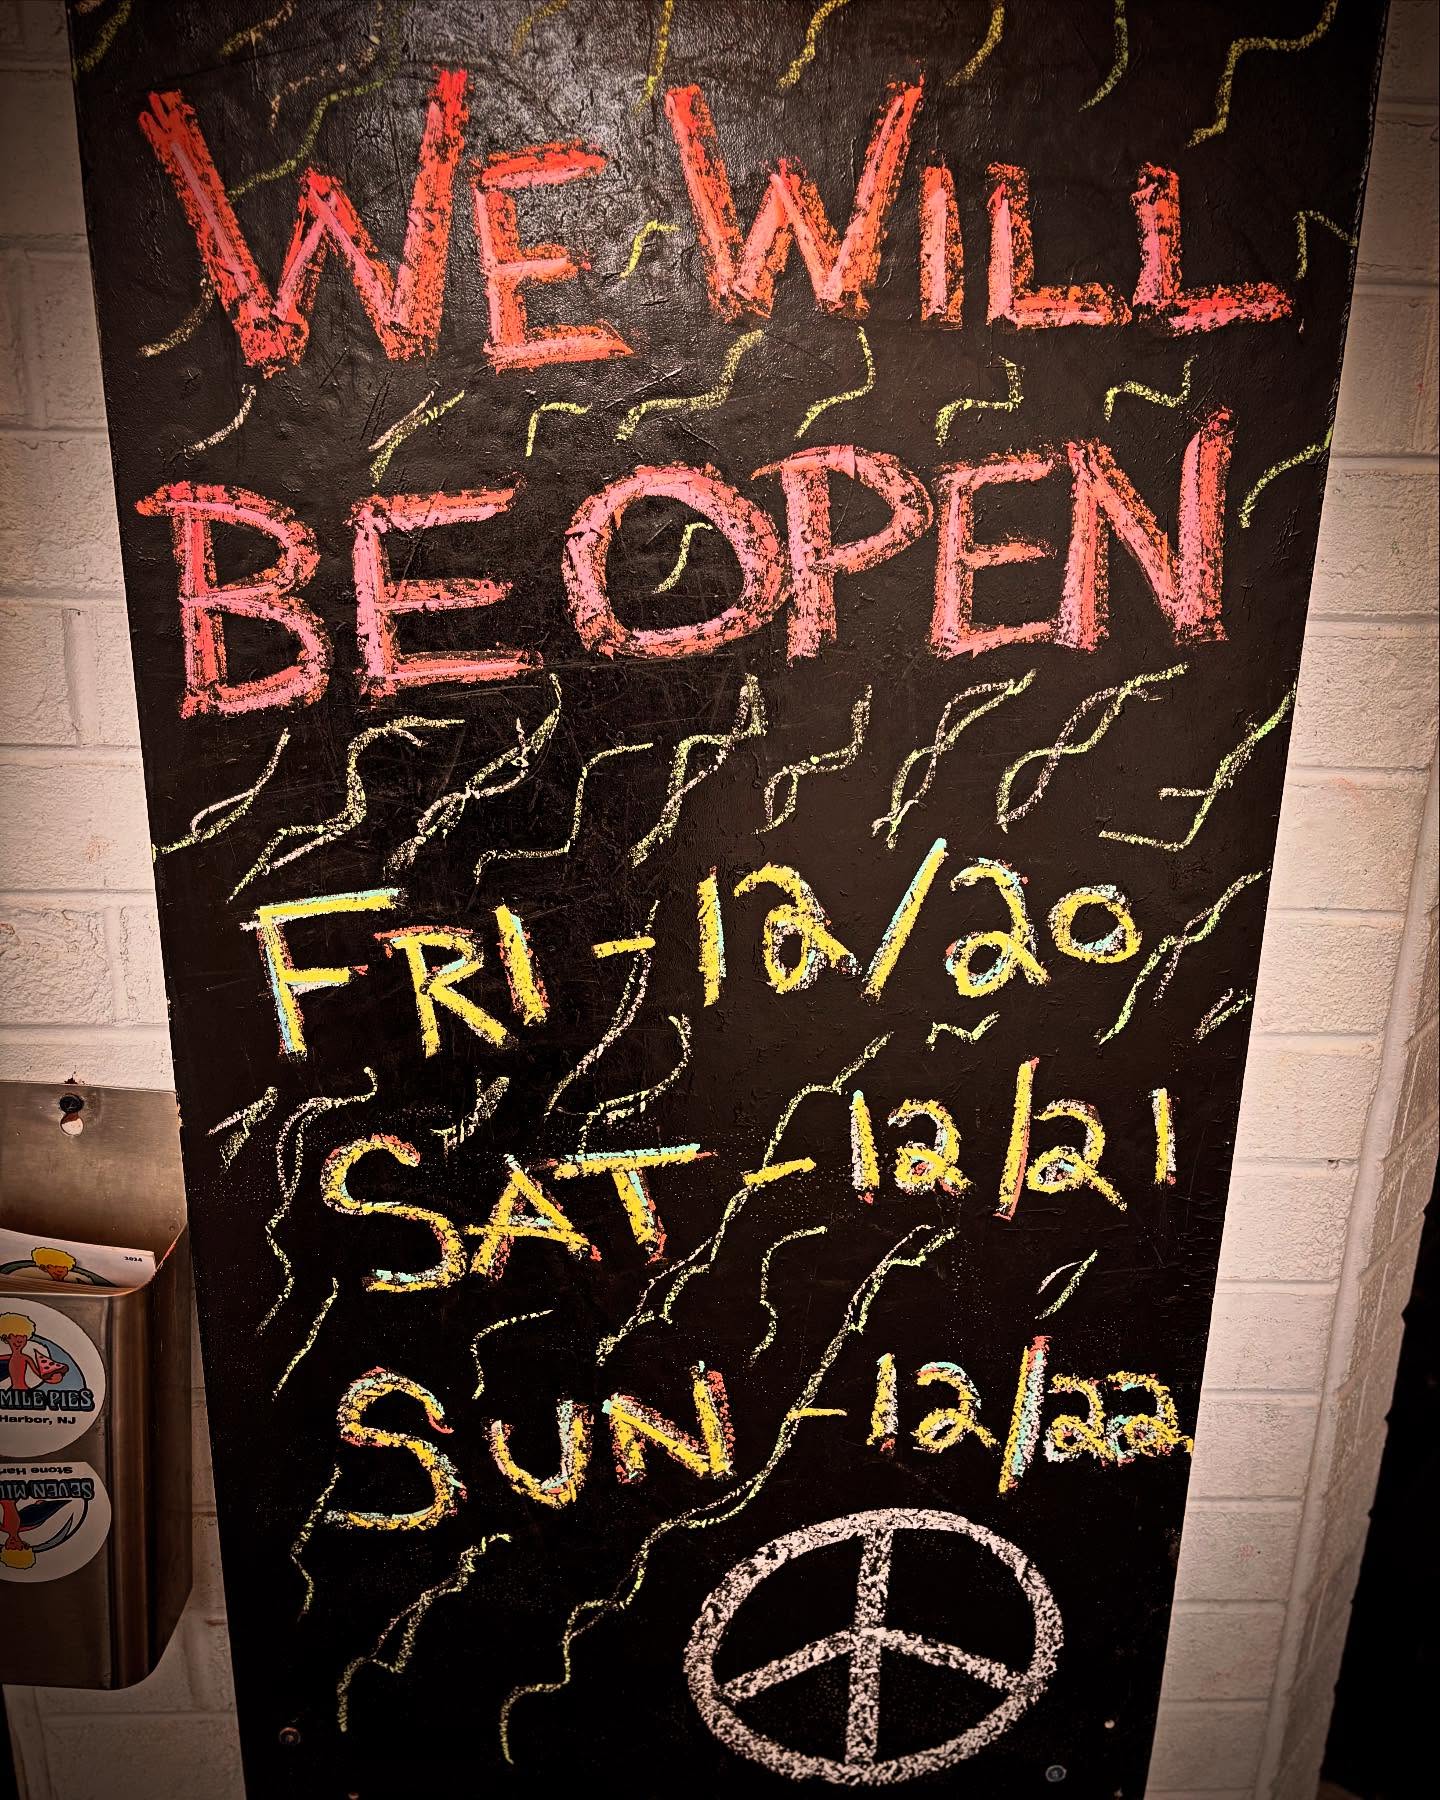 WE WILL
BE OPEN
FRI - 12/20
SAT - 12/21
SUN - 12/22
2024
MILE PIES
Harbor, NJ
Stone Har
SEVEN MIL